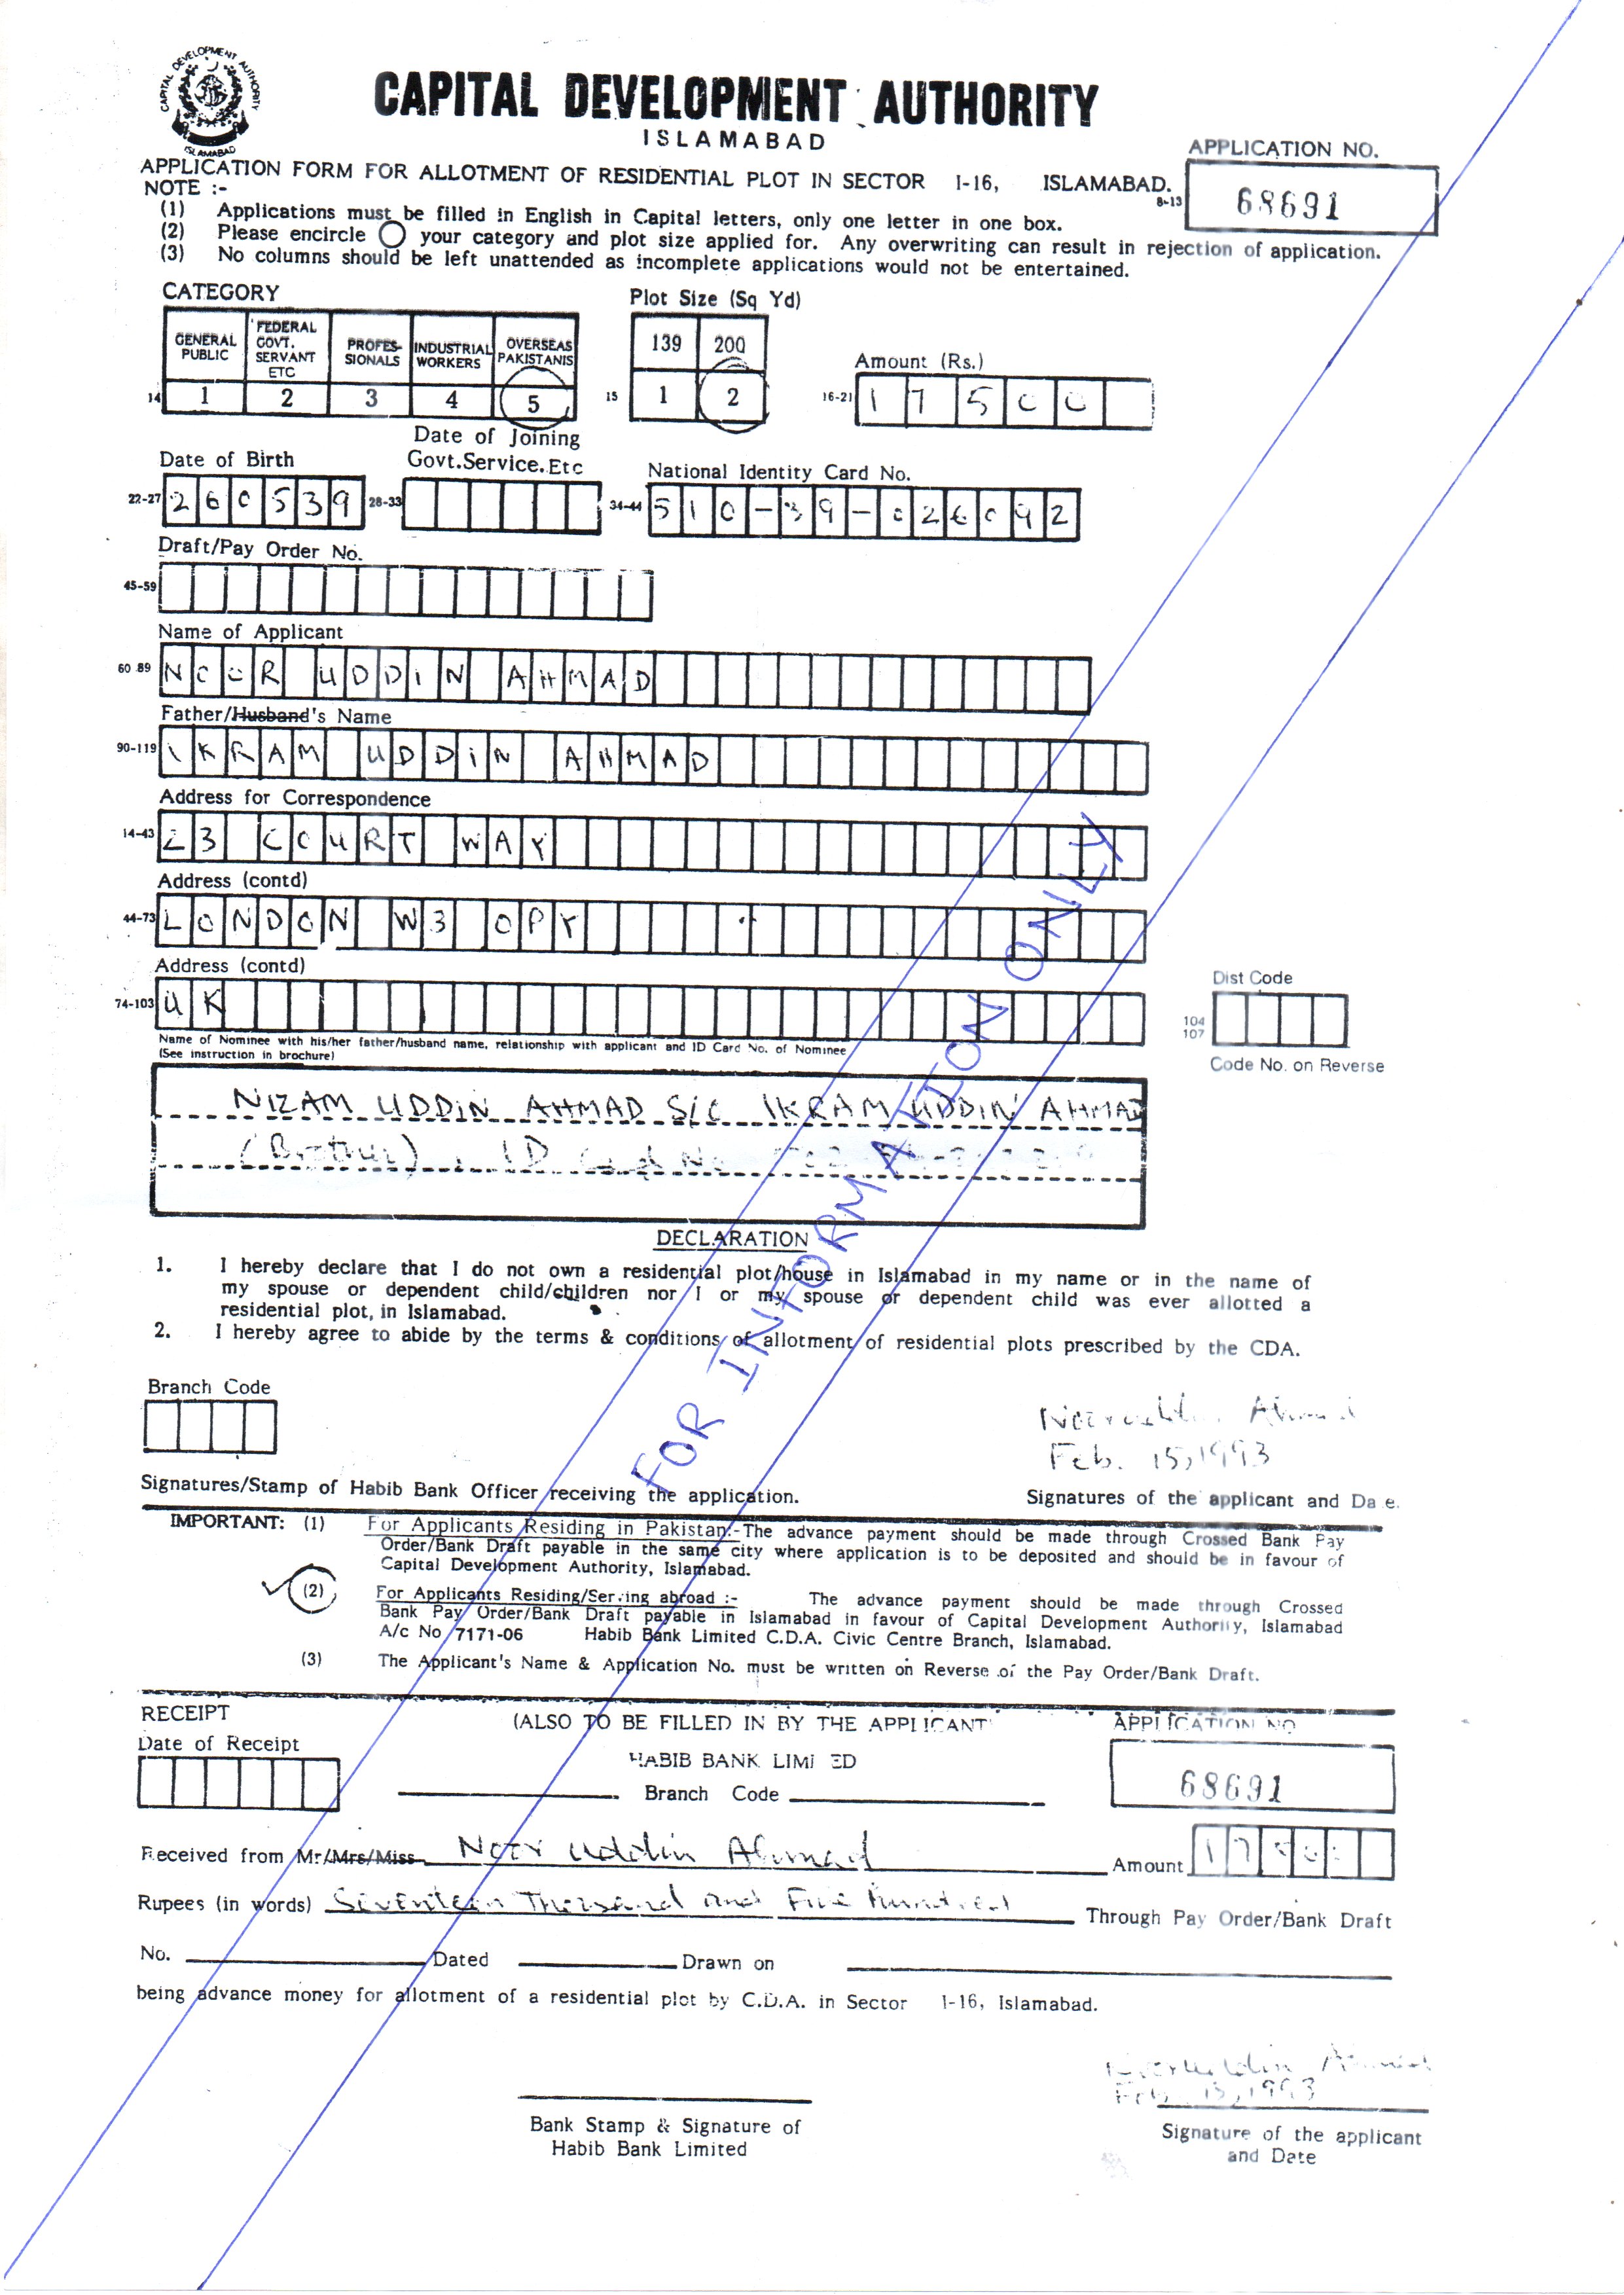 CAPITAL DEVELOPMENT AUTHORITY ISLAMABAD
CAPITAL DEVELOPMENT AUTHORITY
ISLAMABAD
APPLICATION NO.
APPLICATION FORM FOR ALLOTMENT OF RESIDENTIAL PLOT IN SECTOR I-16, ISLAMABAD.
8-13 68691
NOTE :-
(1) Applications must be filled in English in Capital letters, only one letter in one box.
(2) Please encircle your category and plot size applied for. Any overwriting can result in rejection of application.
(3) No columns should be left unattended as incomplete applications would not be entertained.
CATEGORY Plot Size (Sq Yd)
GENERAL PUBLIC FEDERAL GOVT. SERVANT ETC PROFES-SIONALS INDUSTRIAL WORKERS OVERSEAS PAKISTANIS 139 200
Amount (Rs.)
14 1 2 3 4 5 15 1 2 16-21 17500
Date of Birth Date of Joining Govt.Service.Etc National Identity Card No.
22-27 260539 28-33 34-44 510-39-026092
Draft/Pay Order No.
45-59
Name of Applicant
60 89 NOOR UDDIN AHMAD
Father/Husband's Name
90-119 IKRAM UDDIN AHMAD
Address for Correspondence
14-43 23 COURT WAY
Address (contd)
44-73 LONDON W3 OPY
Address (contd)
Dist Code
74-103 UK
104 107
Name of Nominee with his/her father/husband name, relationship with applicant and ID Card No. of Nominee
(See instruction in brochure)
Code No. on Reverse
NIZAM UDDIN AHMAD S/O IKRAM UDDIN AHMAD
(Brother) ID Card No
FOR INFORMATION ONLY
DECLARATION
1. I hereby declare that I do not own a residential plot/house in Islamabad in my name or in the name of
my spouse or dependent child/children nor I or my spouse or dependent child was ever allotted a
residential plot, in Islamabad.
2. I hereby agree to abide by the terms & conditions of allotment of residential plots prescribed by the CDA.
Branch Code
Nooruddin Ahmad
Feb. 15, 1993
Signatures/Stamp of Habib Bank Officer receiving the application. Signatures of the applicant and Date.
IMPORTANT: (1) For Applicants Residing in Pakistan:-The advance payment should be made through Crossed Bank Pay
Order/Bank Draft payable in the same city where application is to be deposited and should be in favour of
Capital Development Authority, Islamabad.
(2) For Applicants Residing/Serving abroad :- The advance payment should be made through Crossed
Bank Pay Order/Bank Draft payable in Islamabad in favour of Capital Development Authority, Islamabad
A/c No 7171-06 Habib Bank Limited C.D.A. Civic Centre Branch, Islamabad.
(3) The Applicant's Name & Application No. must be written on Reverse of the Pay Order/Bank Draft.
RECEIPT (ALSO TO BE FILLED IN BY THE APPLICANT) APPLICATION NO
Date of Receipt
HABIB BANK LIMITED
68691
Branch Code
Received from Mr/Mrs/Miss Noor Uddin Ahmad Amount 17500
Rupees (in words) Seventeen Thousand and Five Hundred Through Pay Order/Bank Draft
No. Dated Drawn on
being advance money for allotment of a residential plot by C.D.A. in Sector I-16, Islamabad.
Nooruddin Ahmad
Feb. 15, 1993
Bank Stamp & Signature of
Habib Bank Limited
Signature of the applicant
and Date